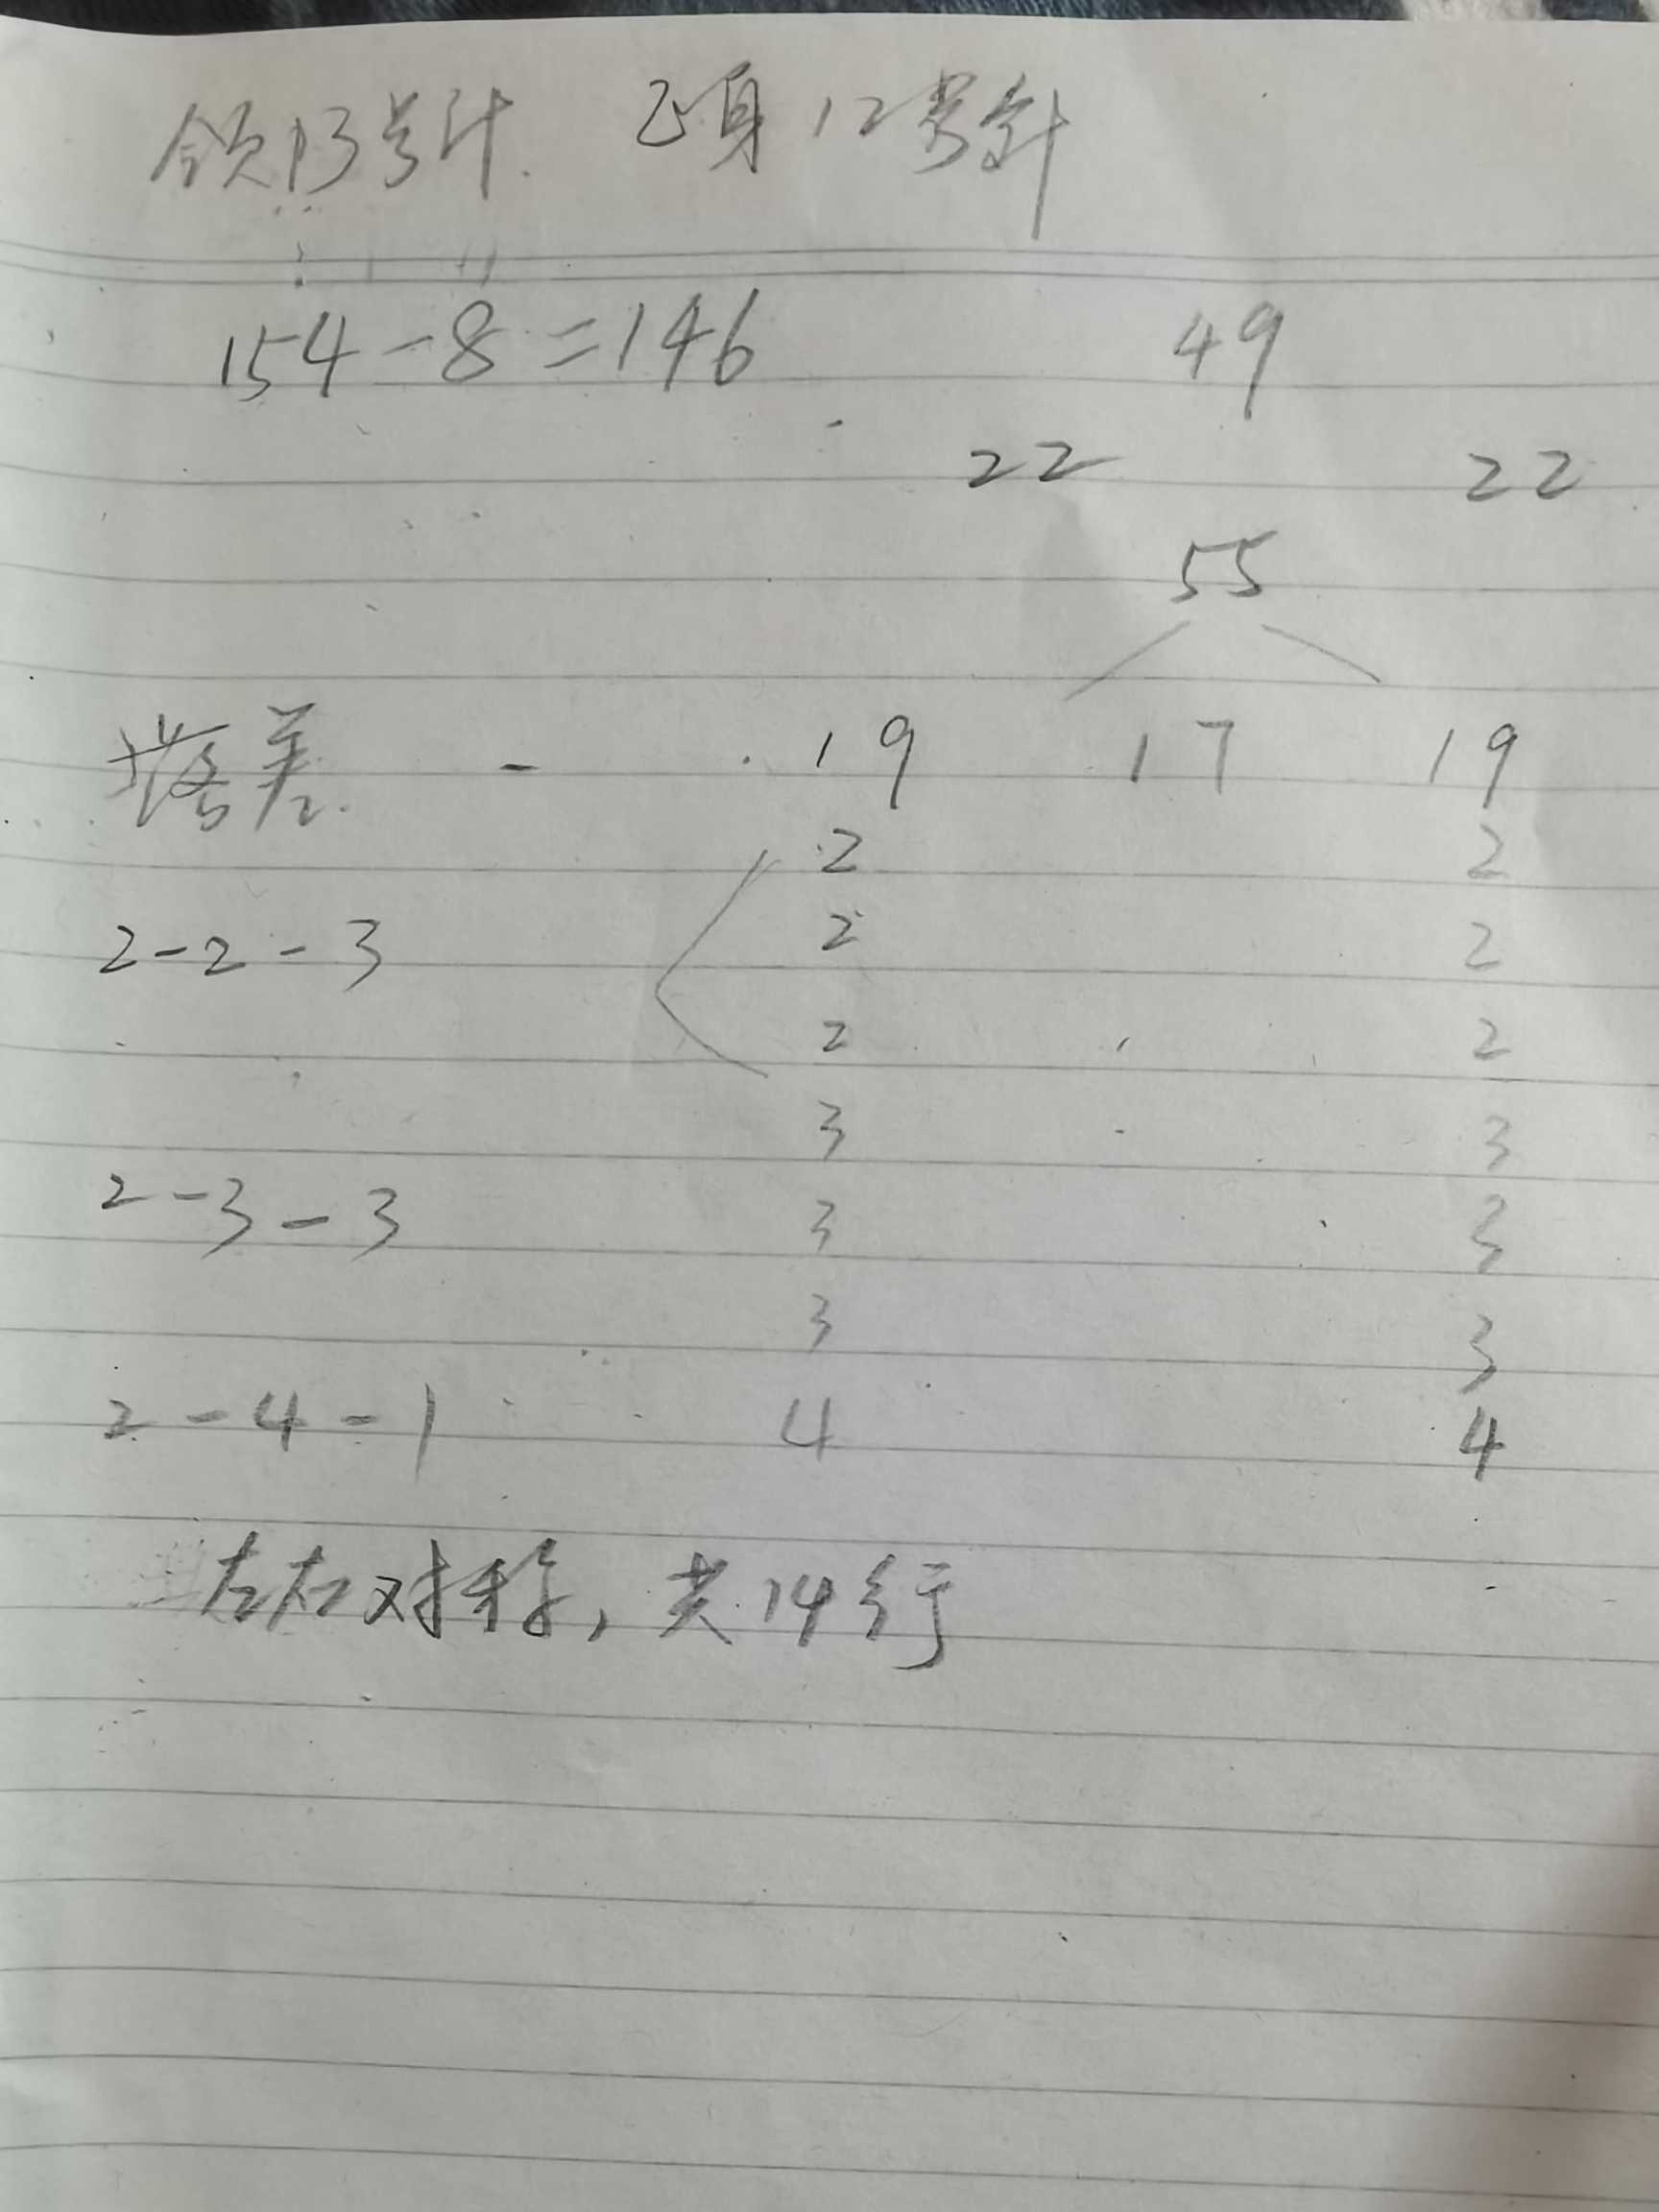 领13号针. 正身12号针
154-8=146 49
22 22
55
落差. - 19 17 19
2 2
2-2-3 2 2
2 2
3 3
2-3-3 3 3
3 3
2-4-1 4 4
左右对称, 共14行